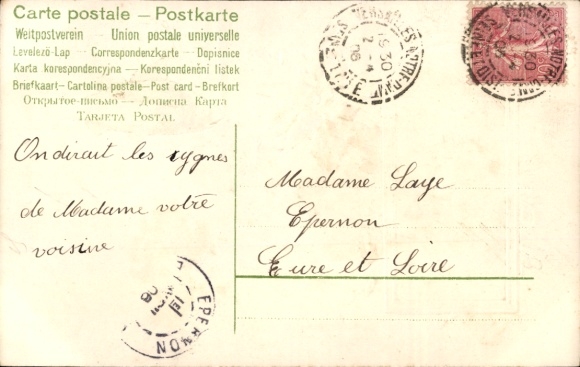 Carte postale — Postkarte
Weltpostverein — Union postale universelle
Levelező-Lap — Correspondenzkarte — Dopisnice
Karta korespondencyjna — Korespondenční lístek
Briefkaart — Cartolina postale — Post card — Brefkort
Открытое письмо — Дописна Карта
TARJETA POSTAL
On dirait les cygnes
de Madame votre
voisine
Madame Laye
Epernon
Eure et Loire
19 30
2 - 4
06
EPERNON